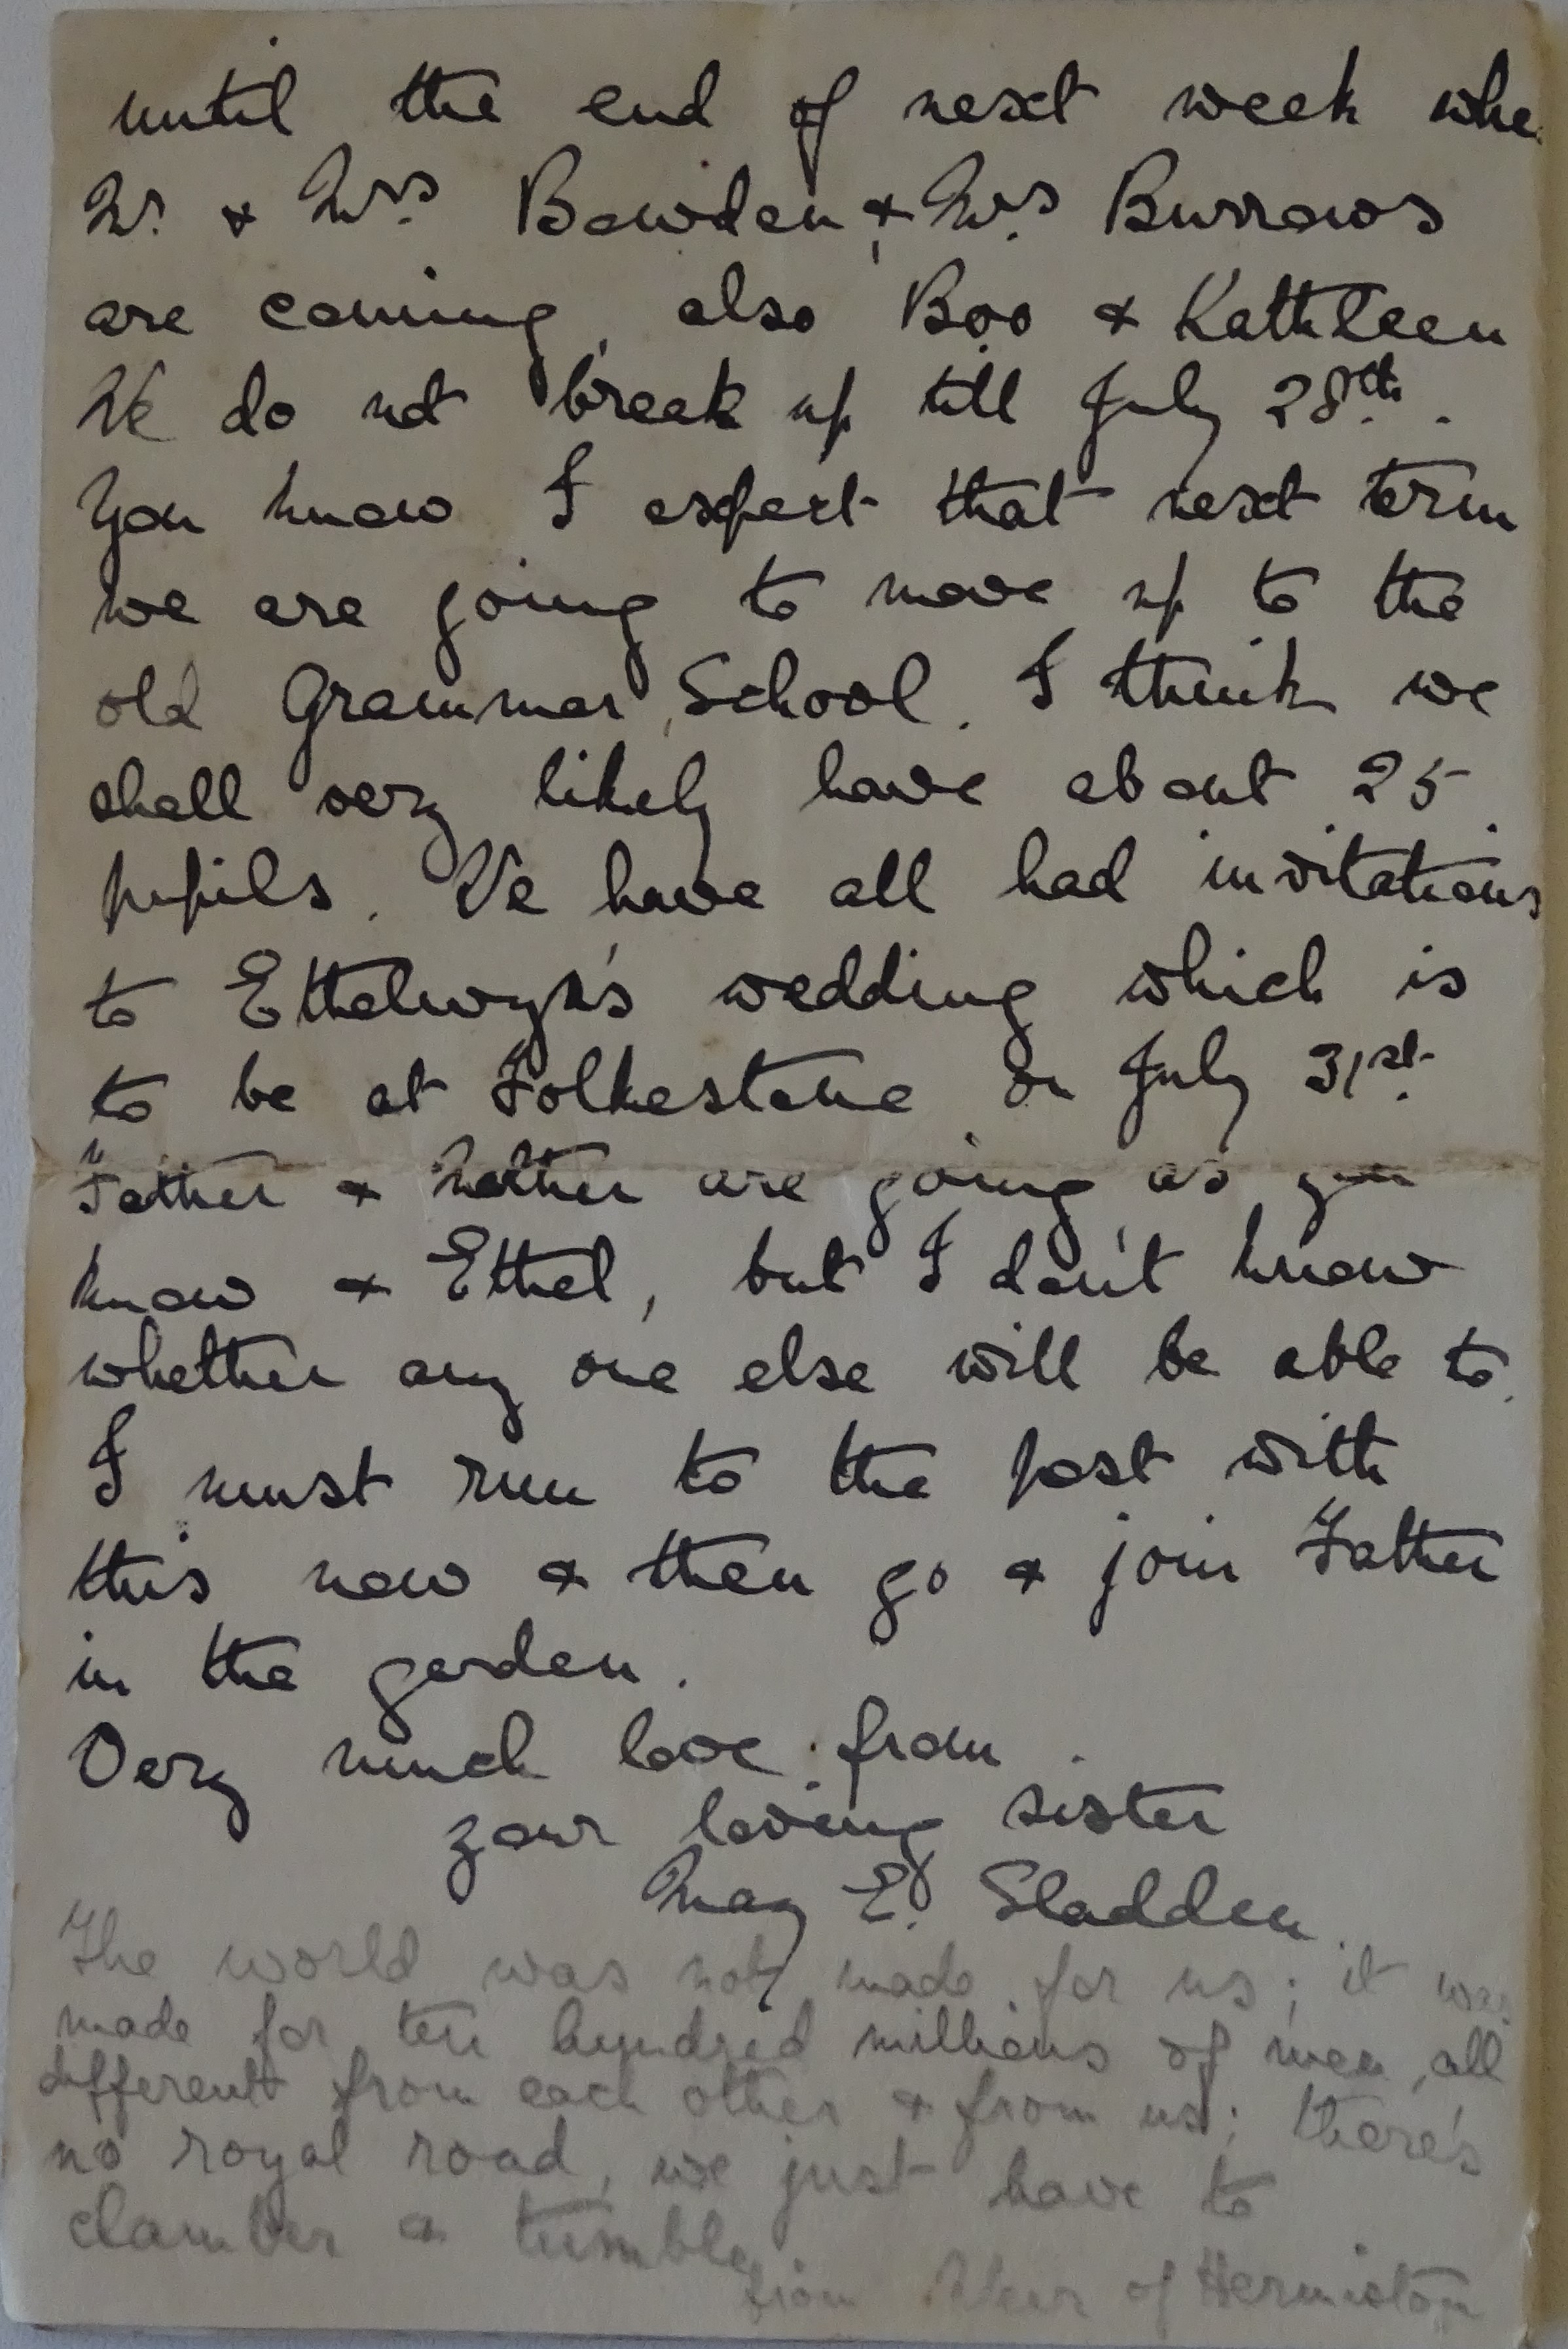 until the end of next week whe
Mr. & Mrs. Bowden, & Mrs. Burrows
are coming, also Boo & Kathleen
We do not break up till July 28th.
You know I expect that next term
we are going to move up to the
old Grammar School. I think we
shall very likely have about 25
pupils. We have all had invitations
to Ethelwyn's wedding which is
to be at Folkestone on July 31st.
Father & Mother are going as you
know & Ethel, but I don't know
whether any one else will be able to.
I must run to the post with
this now & then go & join Father
in the garden.
Very much love from
your loving sister
May E. Sladden.
The world was not made for us; it was
made for ten hundred millions of men, all
different from each other & from us; there's
no royal road, we just have to
clamber & tumble.
from Weir of Hermiston